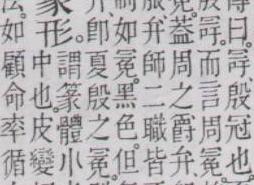 傳曰。冔殷冠也
殷冔。而言周冕
冕。蓋周之爵弁、
弁師二職皆
制如冕。黑色。但
卽夏殷之冕。
篆形。
謂篆體小
中也。皮變
法。如顧命率循